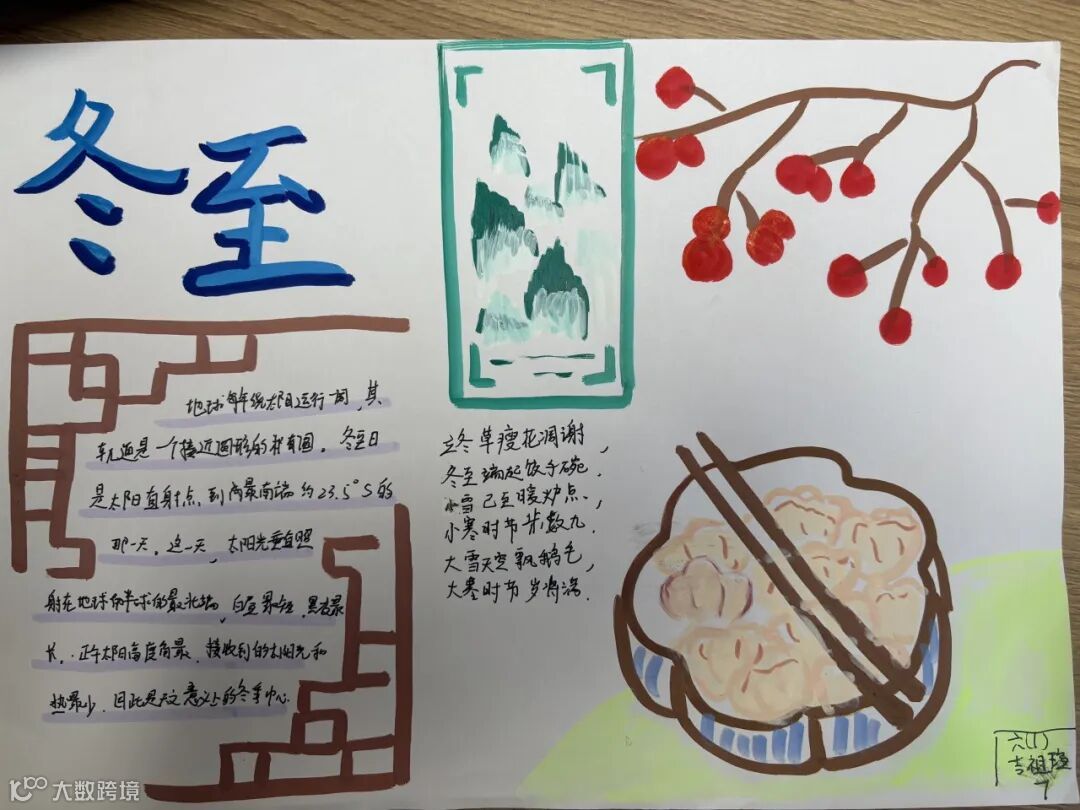 冬至
地球每年绕太阳运行一周,其
轨道是一个接近圆形的椭圆。冬至日
是太阳直射点,到南最南端约23.5°S的
那一天。这一天 太阳光垂直照
射在地球南半球的最北端,白昼最短,黑夜最
长,正午太阳高度角最,接收到的太阳光和
热最少,因此是天文意义上的冬季中心
立冬草瘦花凋谢,
冬至端起饺子碗.
小雪已至暖炉点、,
小寒时节步数九.
大雪天空飘鹅毛,
大寒时节岁将满.
六(1)
吉祖
大数跨境